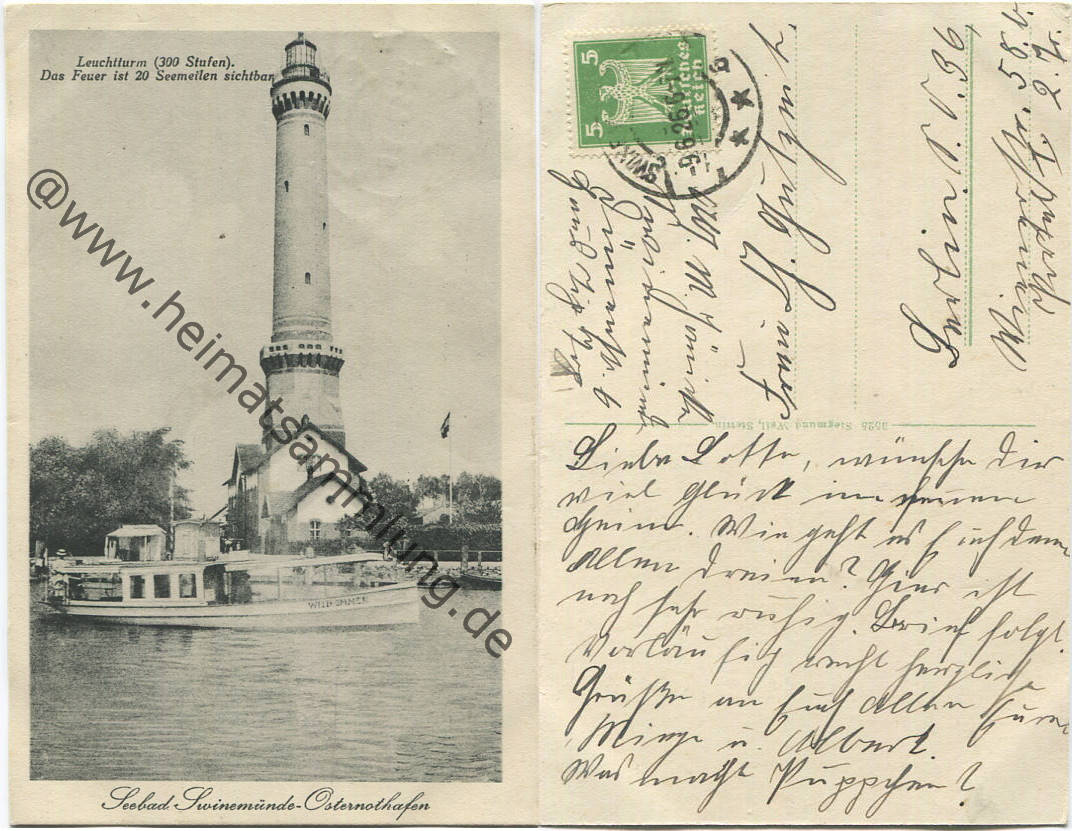 Leuchtturm (300 Stufen).
Das Feuer ist 20 Seemeilen sichtbar
@www.heimatsammlung.de
Seebad Swinemünde-Osternothafen
5 Deutsches Reich 5
-9.6.26.6-7N
Frau H.
Berlin S.O. 36
58 v.
2 Tr.
3525 Siegmund Weil, Stettin
Liebe Lotte, wünsche Dir
viel Glück im neuen
Heim. Wie geht es Euch denn
Allen Dreien? Hier ist
noch sehr ruhig. Brief folgt.
Vorläufig recht herzliche
Grüße an Euch Allen Eure
Mieze u. Albert.
Was macht Püppchen?